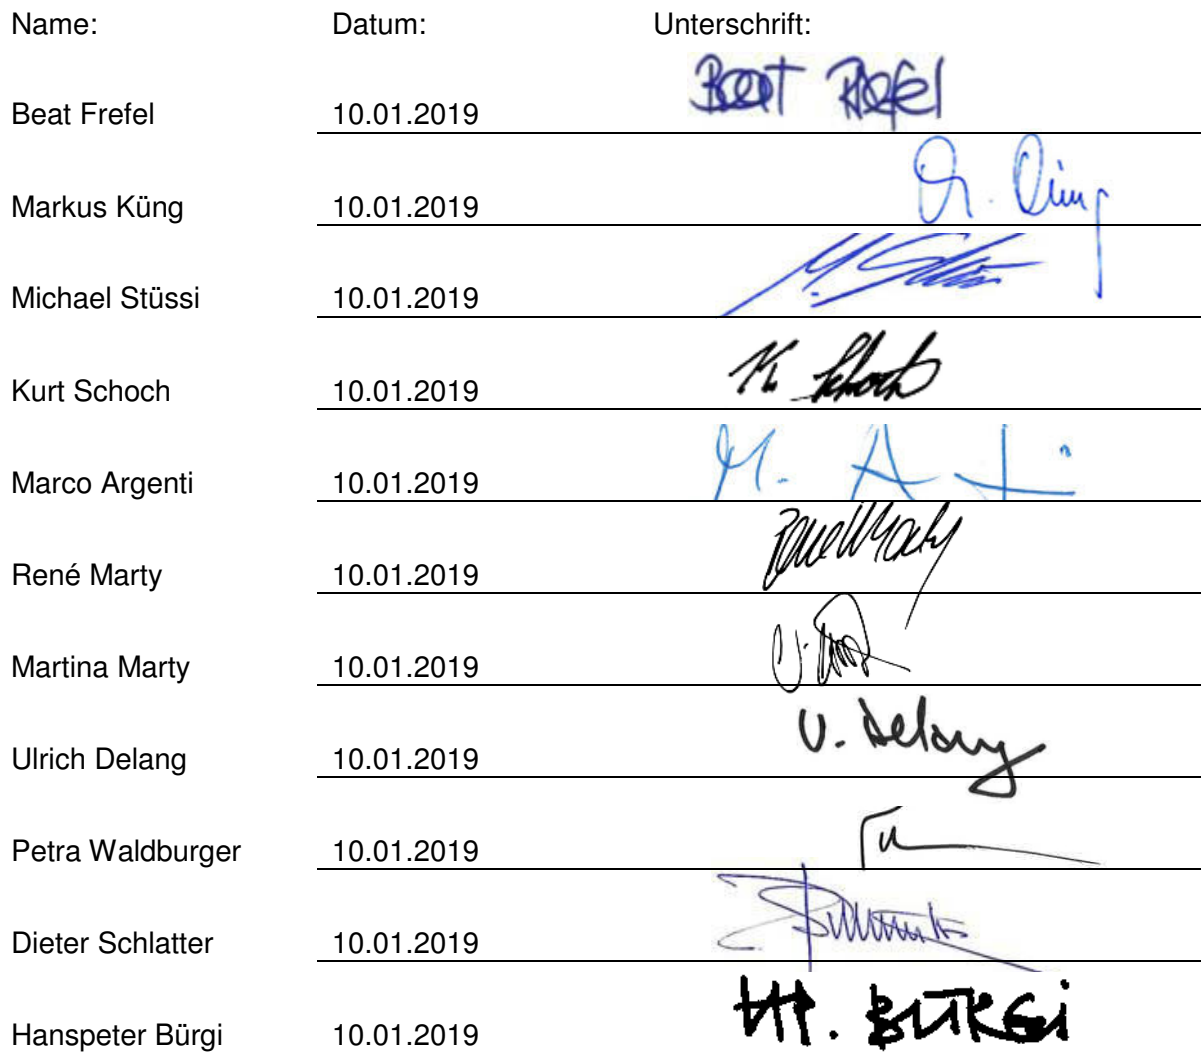 Name: Datum: Unterschrift:
Beat Frefel 10.01.2019 Beat Frefel
Markus Küng 10.01.2019
Michael Stüssi 10.01.2019
Kurt Schoch 10.01.2019 K. Schoch
Marco Argenti 10.01.2019
René Marty 10.01.2019 René Marty
Martina Marty 10.01.2019
Ulrich Delang 10.01.2019 U. Delang
Petra Waldburger 10.01.2019
Dieter Schlatter 10.01.2019
Hanspeter Bürgi 10.01.2019 HP. BÜRGi